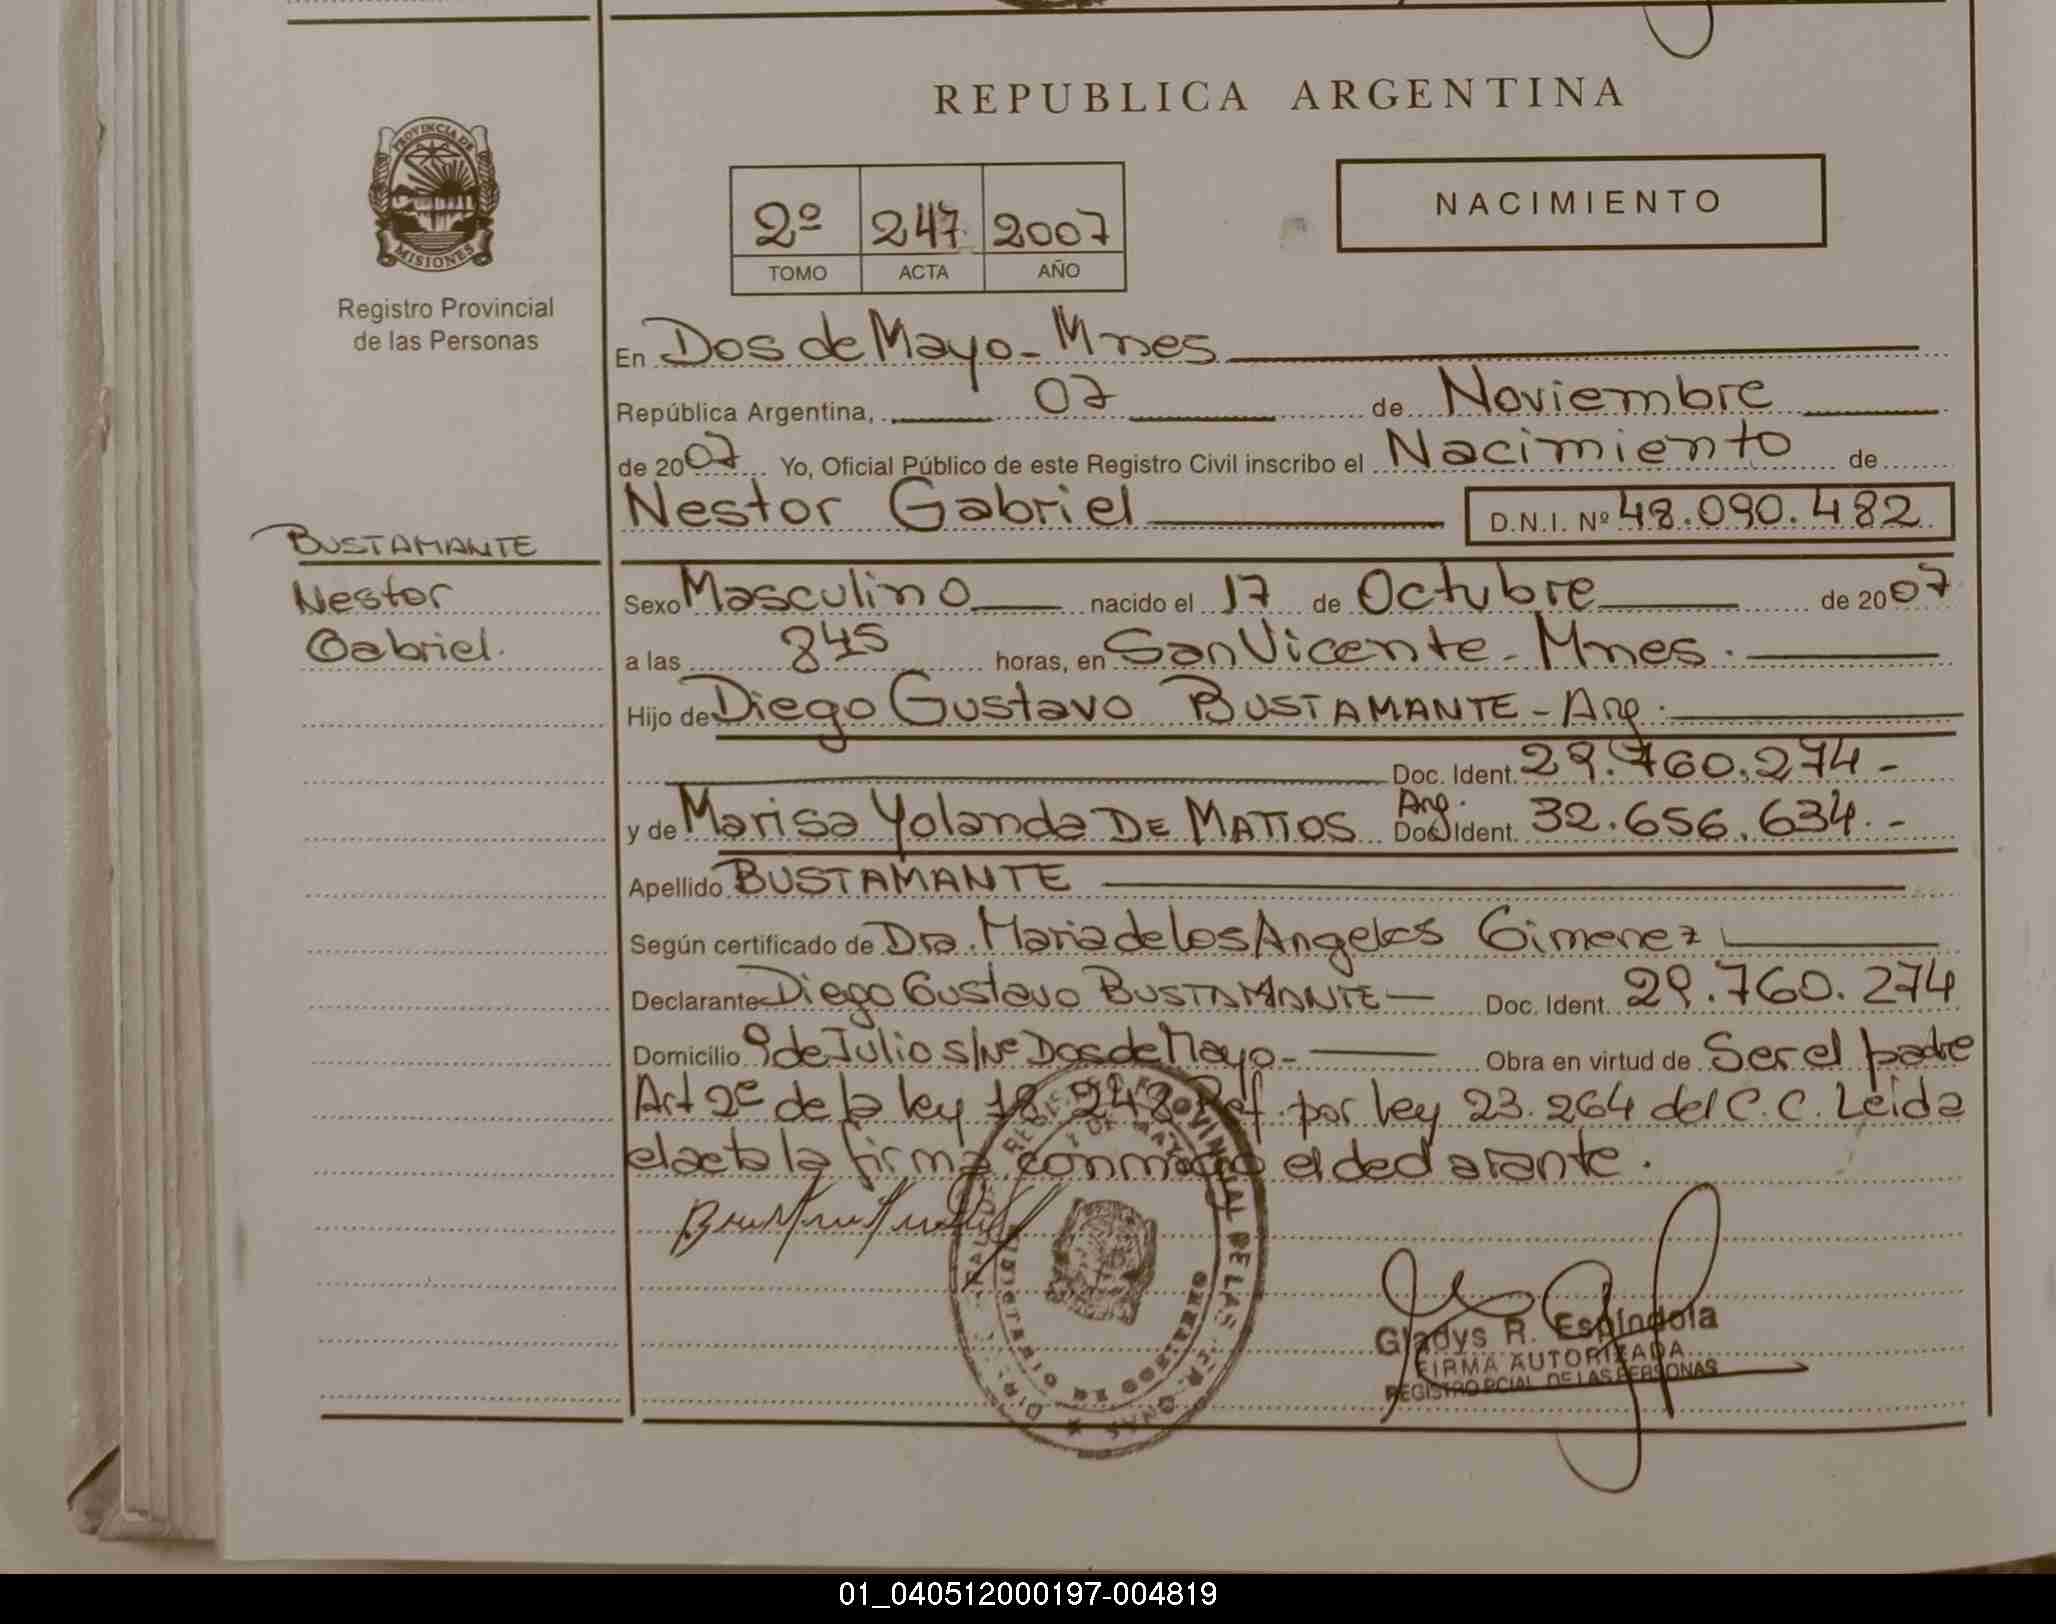 REPUBLICA ARGENTINA
PROVINCIA DE
MISIONES
Registro Provincial
de las Personas
2º 247 2007
TOMO ACTA AÑO
NACIMIENTO
En Dos de Mayo - Mnes
República Argentina, 07 de Noviembre
de 2007 Yo, Oficial Público de este Registro Civil inscribo el Nacimiento de
Nestor Gabriel D.N.I. Nº 48.090.482
BUSTAMANTE
Nestor
Gabriel.
Sexo Masculino nacido el 17 de Octubre de 2007
a las 845 horas, en San Vicente - Mnes.
Hijo de Diego Gustavo BUSTAMANTE - Arg.
Doc. Ident. 29.760.274 -
y de Marisa Yolanda DE MATTOS Arg. Doc. Ident. 32.656.634. -
Apellido BUSTAMANTE
Según certificado de Dra. Maria de los Angeles Gimenez
Declarante Diego Gustavo BUSTAMANTE Doc. Ident. 29.760.274
Domicilio 9 de Julio s/Nº Dos de Mayo - Obra en virtud de Ser el padre
Art 2º de la ley 18.248 Ref. por ley 23.264 del C.C. Leida
el acta la firma conmigo el declarante.
Gladys R. Espíndola
FIRMA AUTORIZADA
REGISTRO PCIAL. DE LAS PERSONAS
01_040512000197-004819